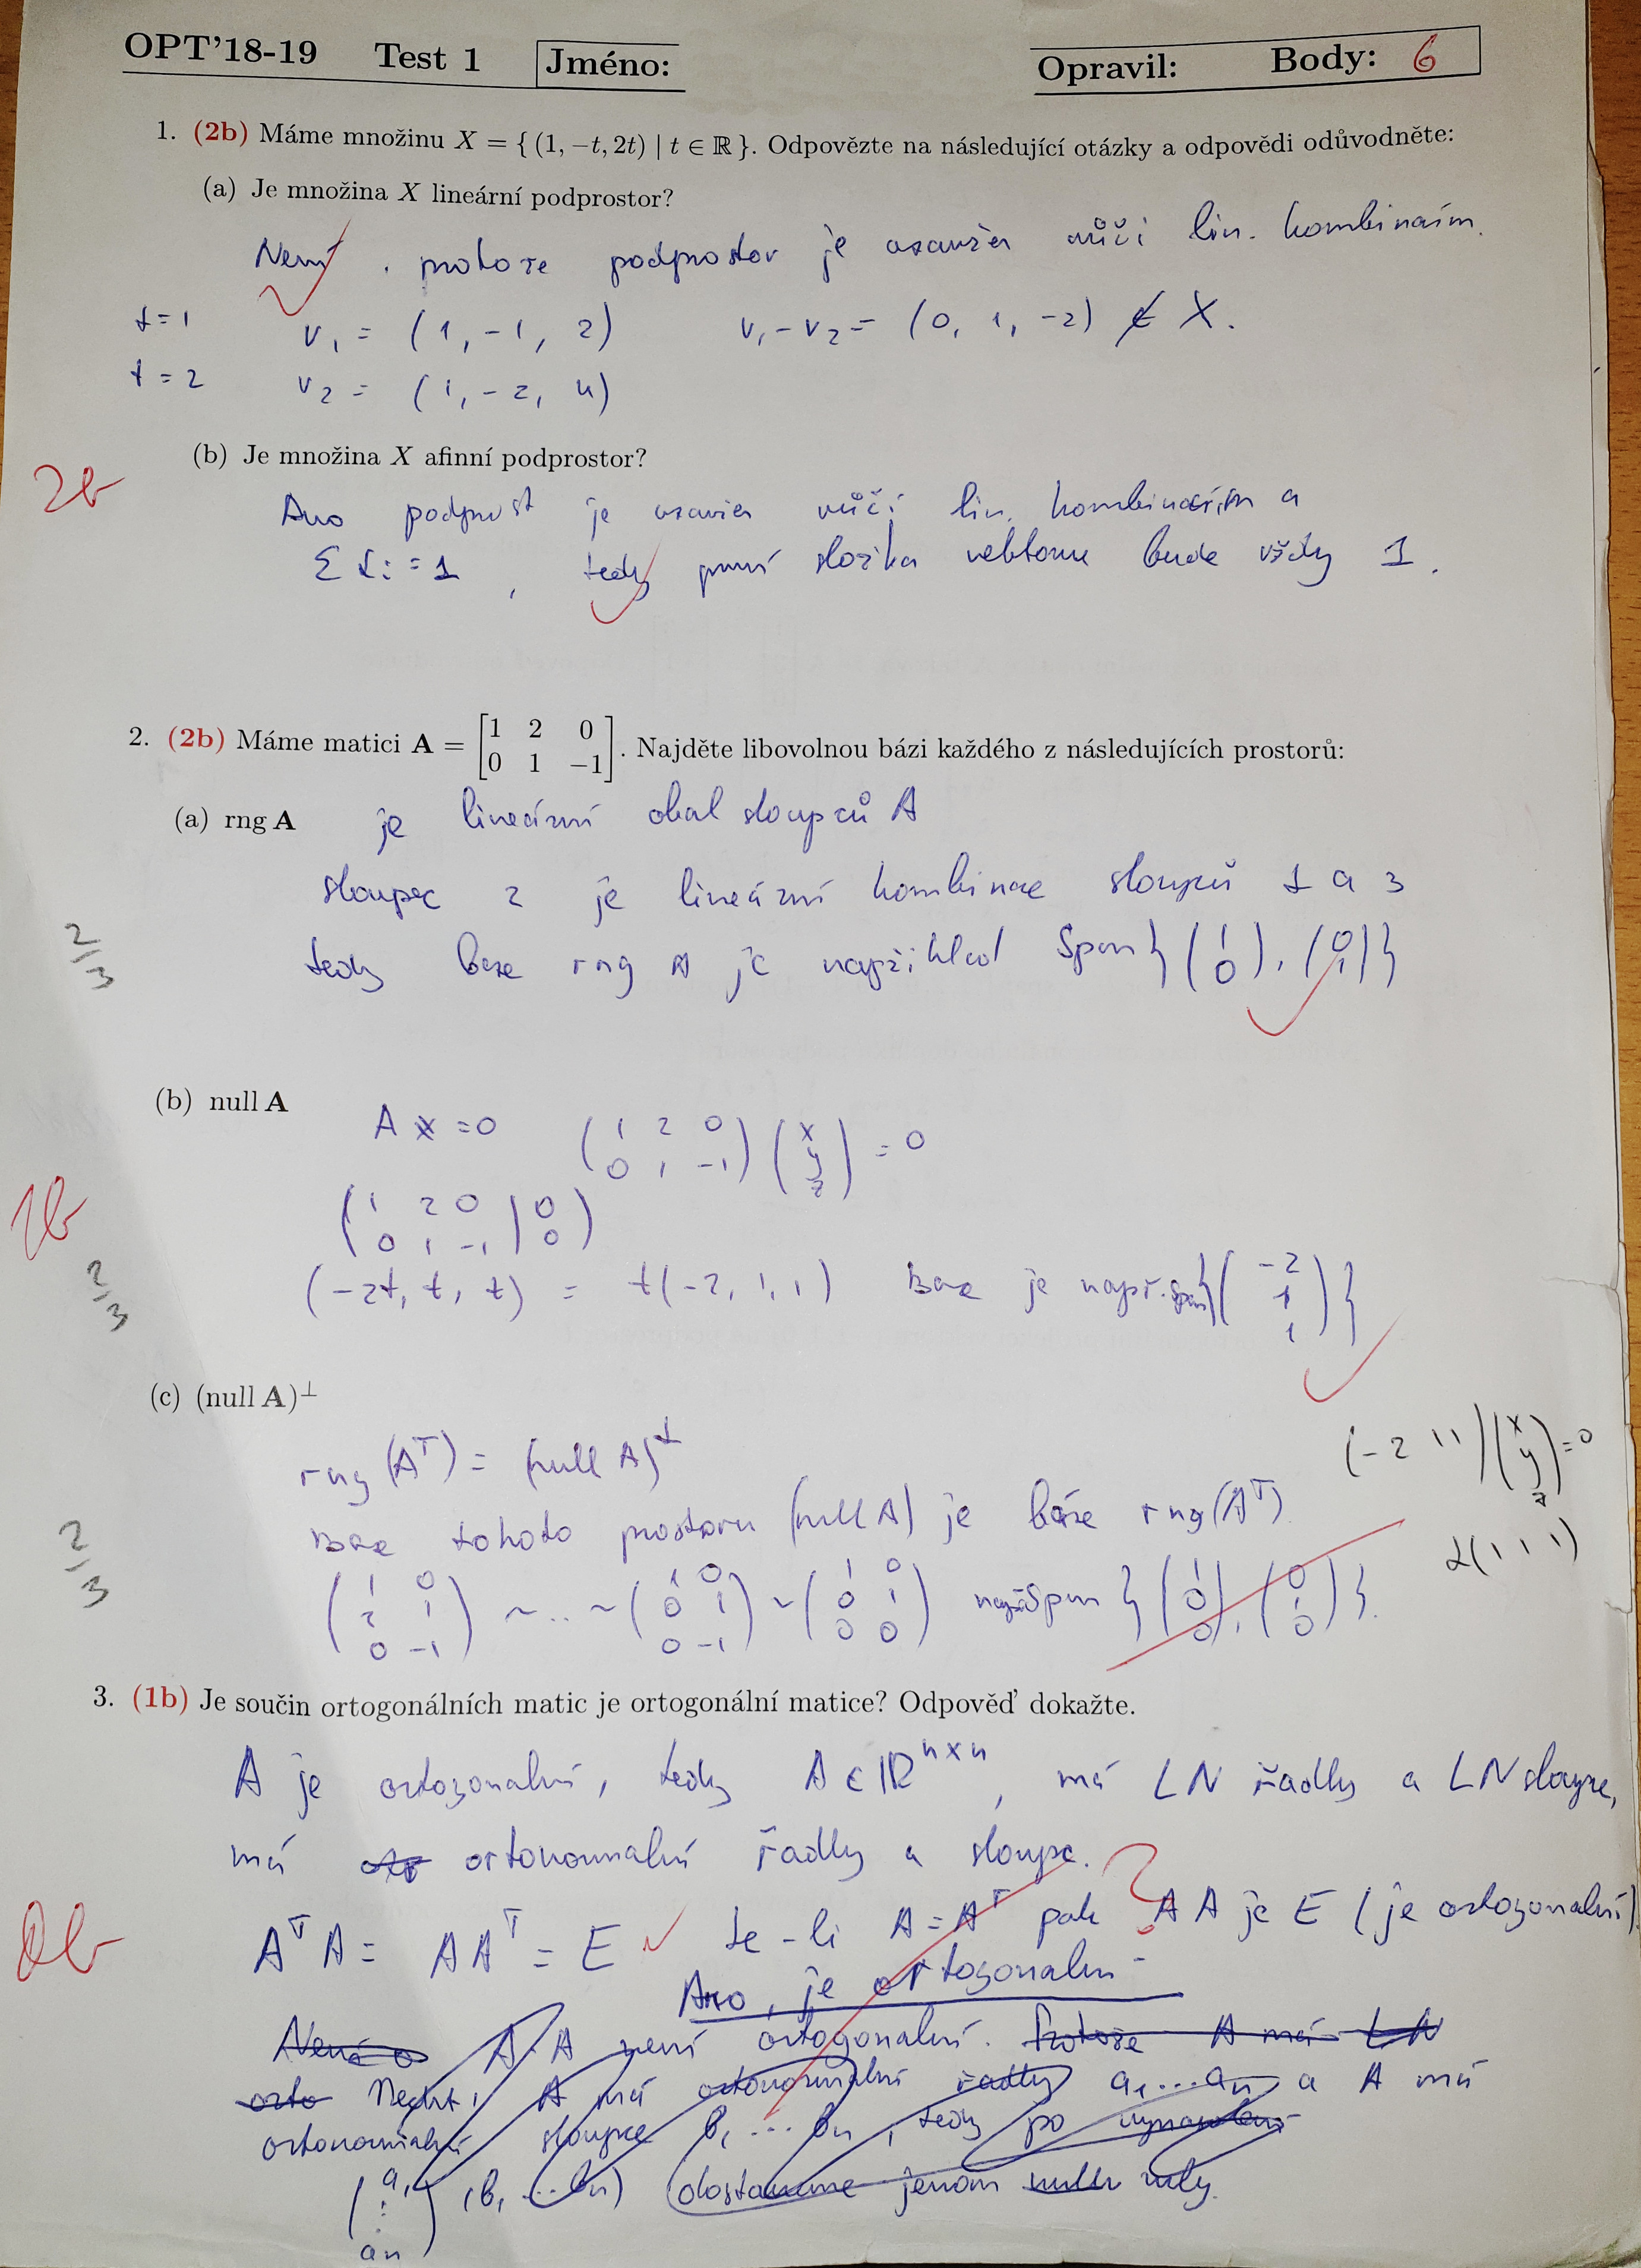 OPT'18-19 Test 1 Jméno: Opravil: Body: 6
1. (2b) Máme množinu X = { (1, −t, 2t) | t ∈ ℝ }. Odpovězte na následující otázky a odpovědi odůvodněte:
(a) Je množina X lineární podprostor?
Není, protože podprostor je uzavřen vůči lin. kombinacím.
t=1 v₁ = (1, −1, 2) v₁ − v₂ = (0, 1, −2) ∉ X.
t = 2 v₂ = (1, −2, 4)
(b) Je množina X afinní podprostor?
2b
Ano podprost je uzavřen vůči lin. kombinacím a
Σ αᵢ = 1, tedy první složka vektoru bude vždy 1.
2. (2b) Máme matici A = [1 2 0; 0 1 −1]. Najděte libovolnou bázi každého z následujících prostorů:
(a) rng A je lineární obal sloupců A
sloupec 2 je lineární kombinace sloupců 1 a 3
2/3
tedy baze rng A je například Span{(1 0), (0 1)}
(b) null A
A x = 0 (1 2 0; 0 1 −1) (x y z) = 0
1b
(1 2 0 | 0; 0 1 −1 | 0)
2/3
(−2t, t, t) = t(−2, 1, 1) Baze je např. span{(−2 1 1)}
(c) (null A)⊥
rng (Aᵀ) = (null A)⊥
(−2 1 1)(x y z) = 0
Baze tohoto prostoru (null A) je báze rng(Aᵀ).
2/3
α(1 1 1)
(1 0; 2 1; 0 −1) ~ .. ~ (1 0; 0 1; 0 −1) ~ (1 0; 0 1; 0 0) např. Span {(1 0 0), (0 1 0)}.
3. (1b) Je součin ortogonálních matic je ortogonální matice? Odpověď dokažte.
A je ortogonální, tedy A ∈ ℝⁿˣⁿ, má LN řádky a LN sloupce,
má ortonormální řádky a sloupce. ?
0b
AᵀA = AAᵀ = E Je-li A = Aᵀ pak A A je E (je ortogonální)
Ano, je ortogonalní
A·A není ortogonalní. Protože A má LN
orto Nechť A má ortonormalní řadky a₁...aₙ a A má
ortonormalní sloupce b₁ ... bₙ, tedy po
(a₁ : aₙ) (b₁ ... bₙ) dostaneme jenom nuly.